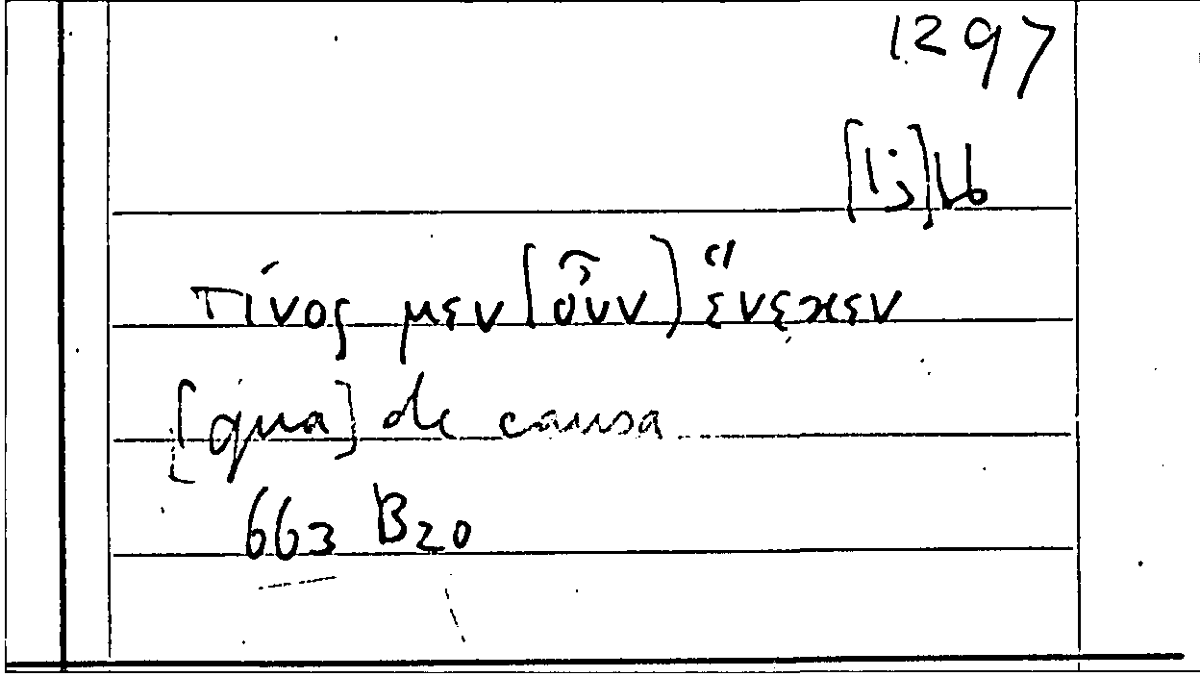 1297
[1j]16
τίνος μεν (οὖν) ἕνεκεν
[qua] de causa
663 B20